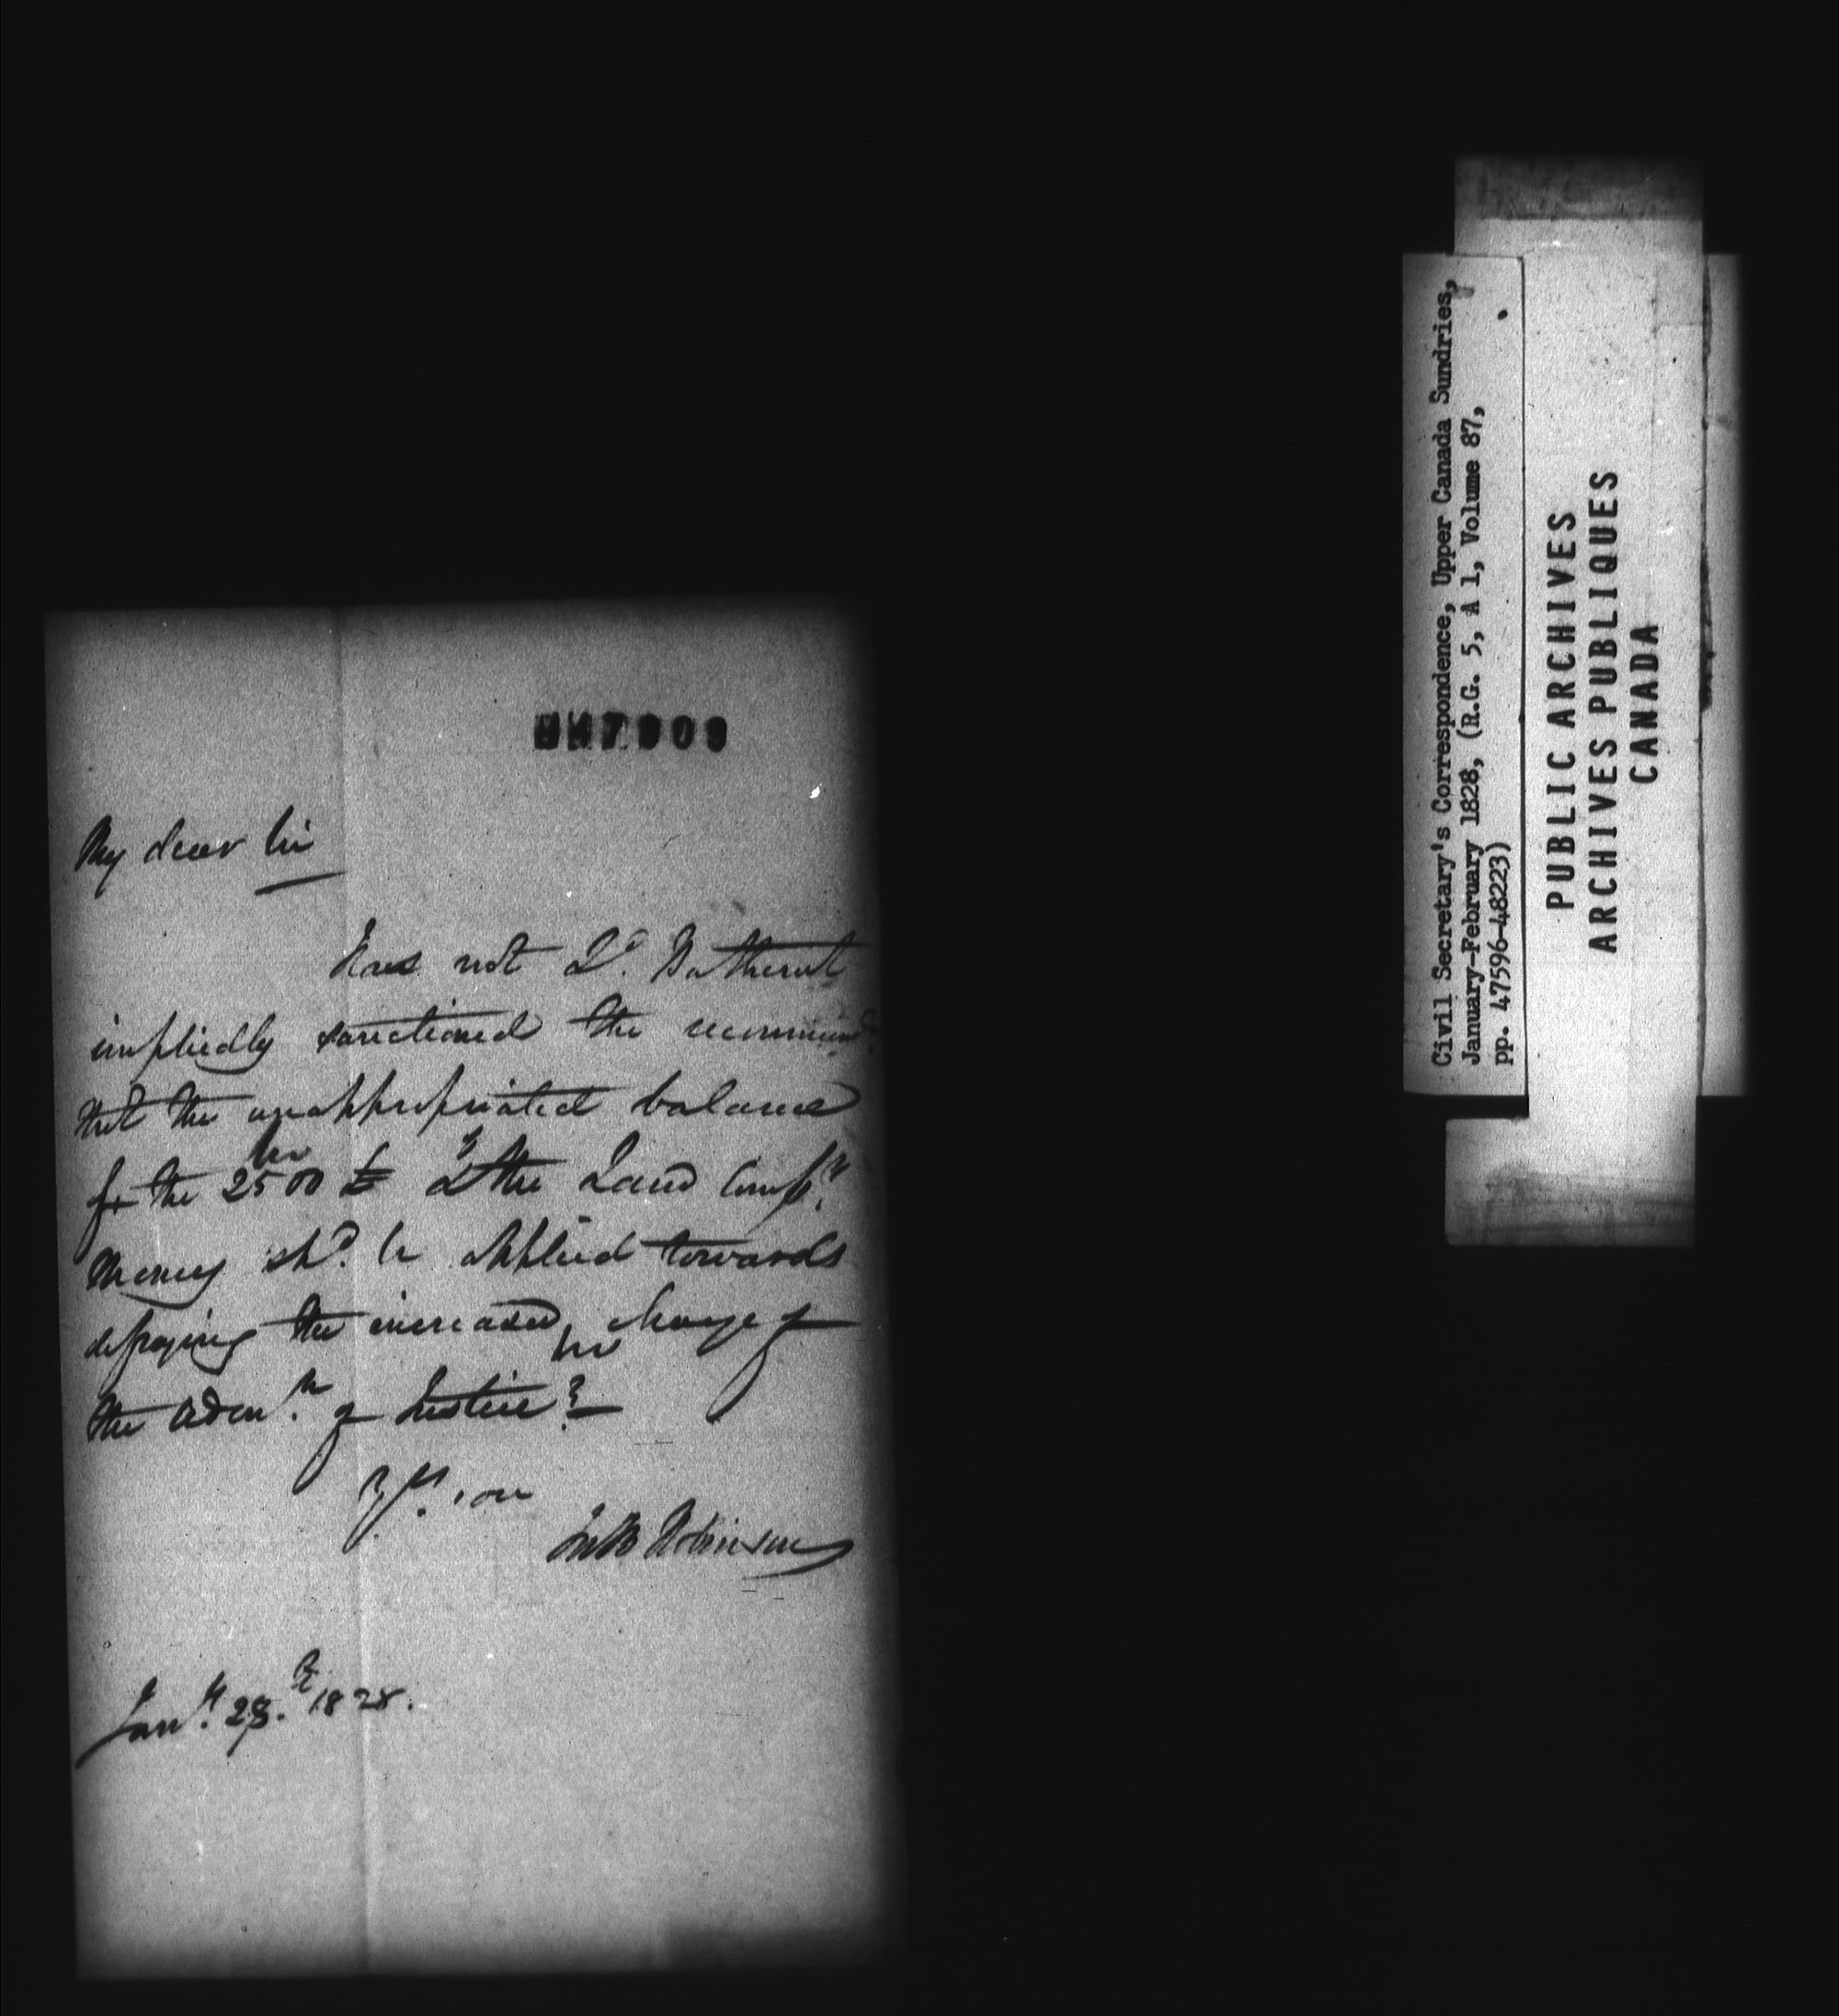 My dear Sir
Has not Ld. Bathurst
impliedly sanctioned the recommendn.
that the unappropriated balance
for the 2500 £ of the Land Compy.
money shd. be applied towards
defraying the increased charge of
the Admn. of Justice?
Yrs. 
Jno B Robinson
Jany. 28. 1828.
Civil Secretary's Correspondence, Upper Canada Sundries,
January-February 1828, (R.G. 5, A 1, Volume 87,
pp. 47596-48223)
PUBLIC ARCHIVES
ARCHIVES PUBLIQUES
CANADA